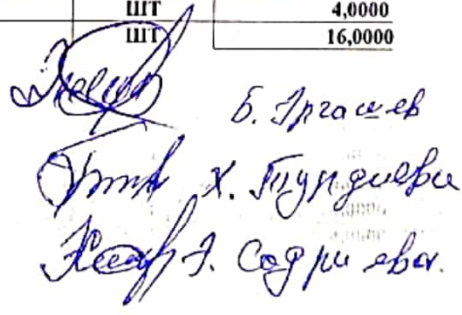 ШТ 4,0000
ШТ 16,0000
Б. Эргашев
Х. Турдиева
Э. Садриева.